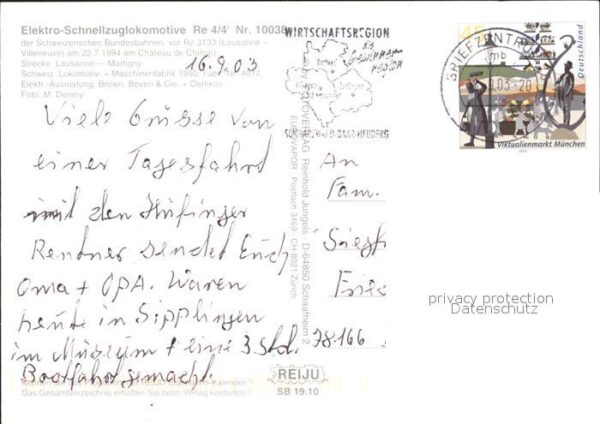 Elektro-Schnellzuglokomotive Re 4/4' Nr. 10038
der Schweizerischen Bundesbahnen, vor Rz 3133 (Lausanne –
Villeneuve) am 22.7.1994 am Château de Chillon
Strecke: Lausanne – Martigny
Schweiz. Lokomotiv- + Maschinenfabrik 1950, Fabr. Nr. 4017
Elektr. Ausrüstung: Brown, Boveri & Cie. + Oerlikon
Foto: M. Demoy
16.9.03
Viele Grüsse von
einer Tagesfahrt
mit den Hüfinger
Rentner sendet Euch
Oma + OPA. Waren
heute in Sipplingen
im Museum + eine 3. Std.
Bootfahrt gemacht.
Das Gesamtverzeichnis erhalten Sie beim Verlag kostenlos!
REIJU
SB 19.10
FOTOVERLAG Reinhold Jungels D-64850 Schaafheim 2
EUROVAPOR Postfach 3469 CH-8021 Zürich
WIRTSCHAFTSREGION
SCHWARZWALD-BAAR-HEUBERG
An
Fam.
Siegf
Frie
78166
BRIEFZENTRUM
mb
.03-20
Deutschland
Viktualienmarkt München
privacy protection
Datenschutz